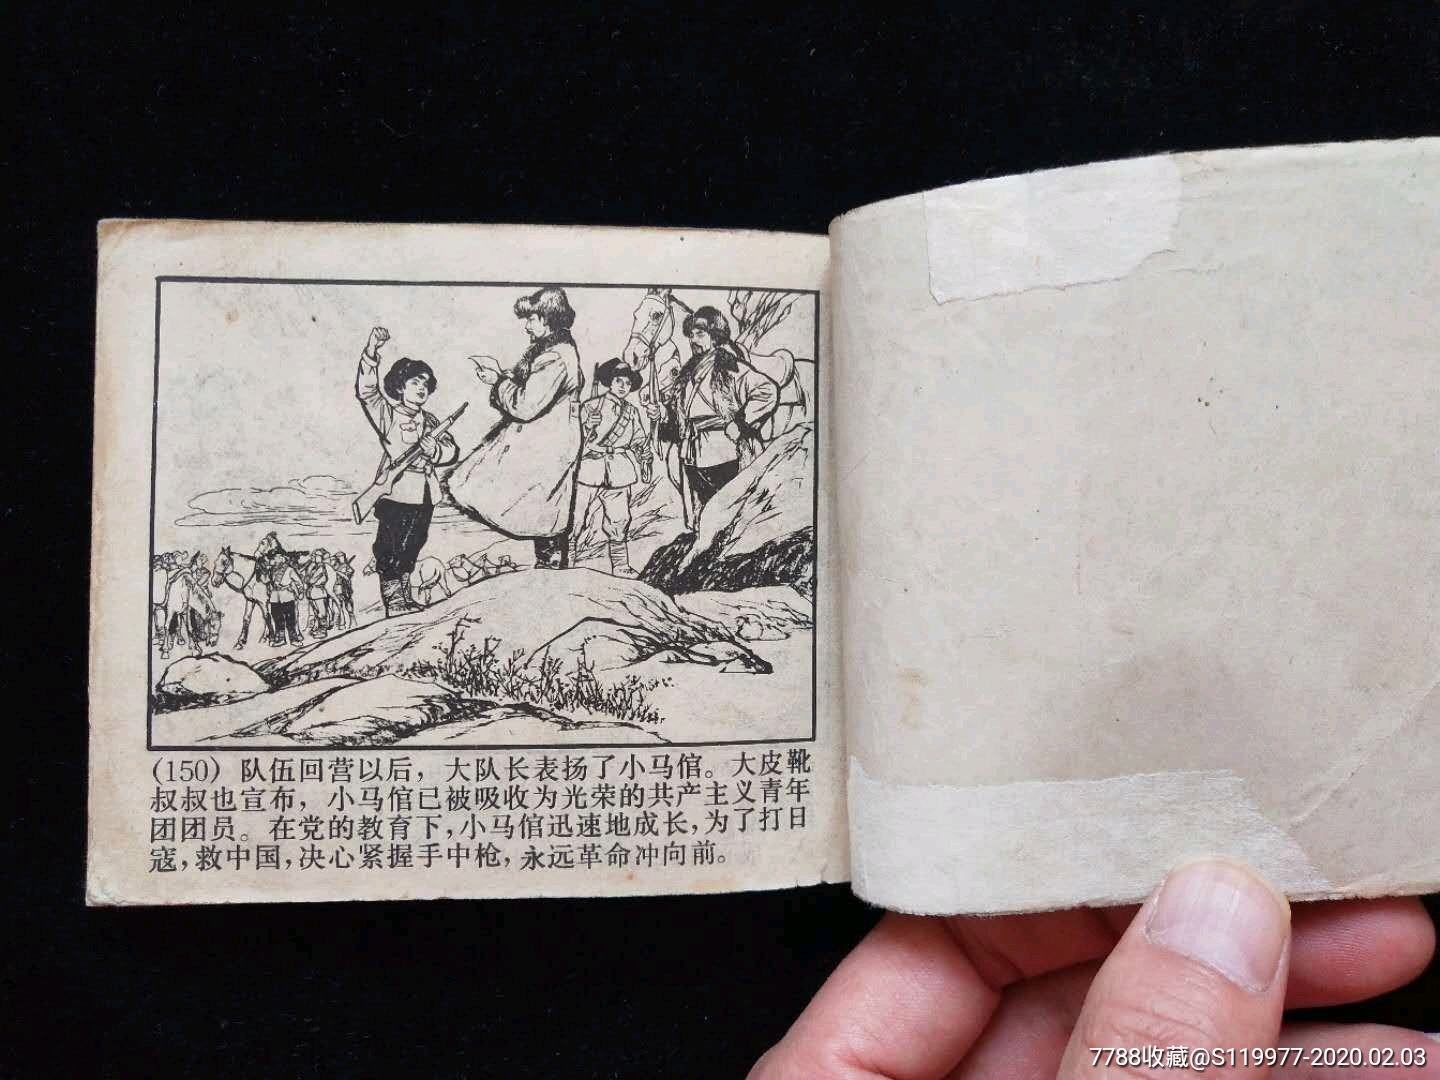 (150) 队伍回营以后，大队长表扬了小马倌。大皮靴
叔叔也宣布，小马倌已被吸收为光荣的共产主义青年
团团员。在党的教育下，小马倌迅速地成长，为了打日
寇，救中国，决心紧握手中枪，永远革命冲向前。
7788收藏@S119977-2020.02.03